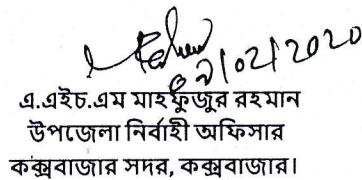 ০৯/০২/২০২০
এ.এইচ.এম মাহফুজুর রহমান
উপজেলা নির্বাহী অফিসার
কক্সবাজার সদর, কক্সবাজার।